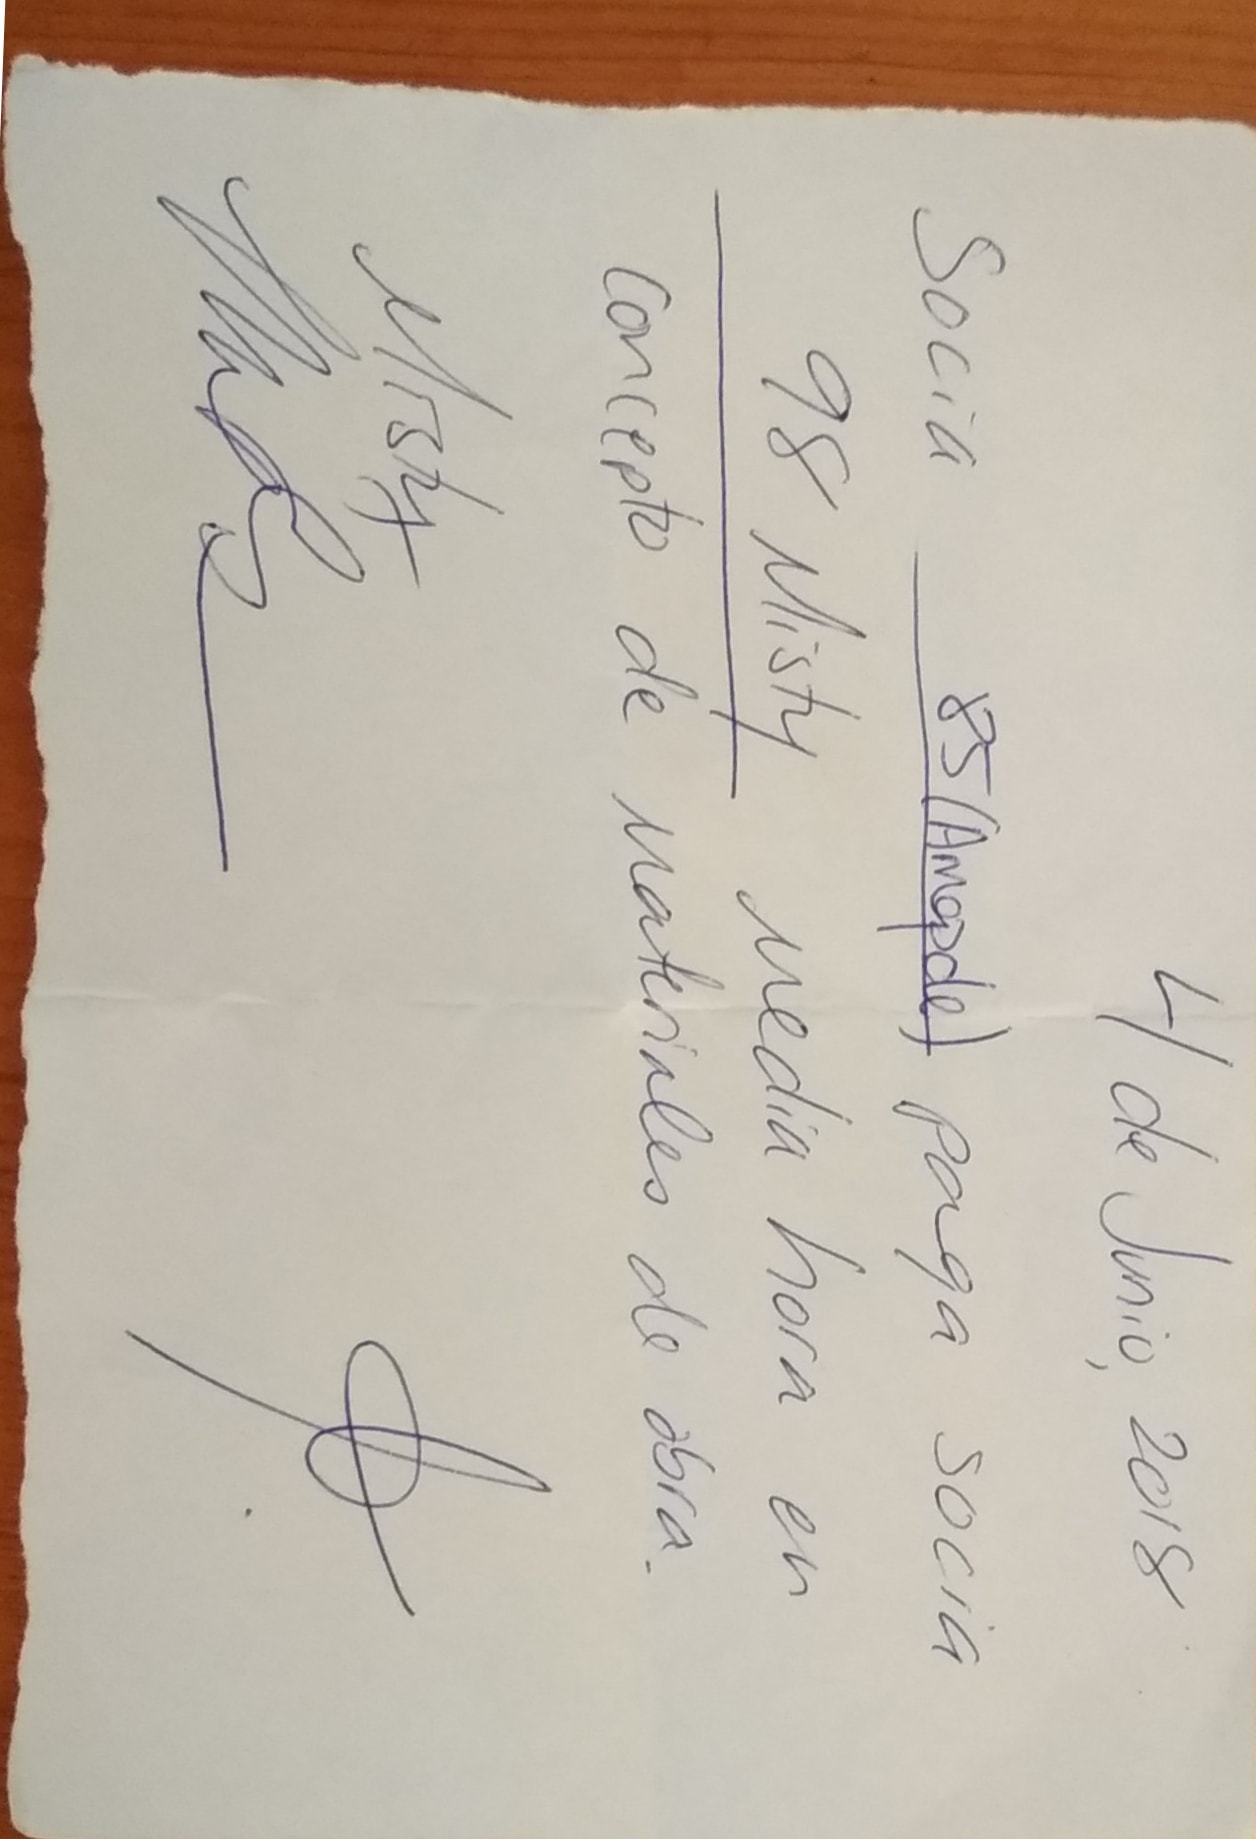 4 de Junio, 2018
Socia 85 (Amapde) paga socia
98 Misty media hora en
concepto de materiales de obra.
Misty